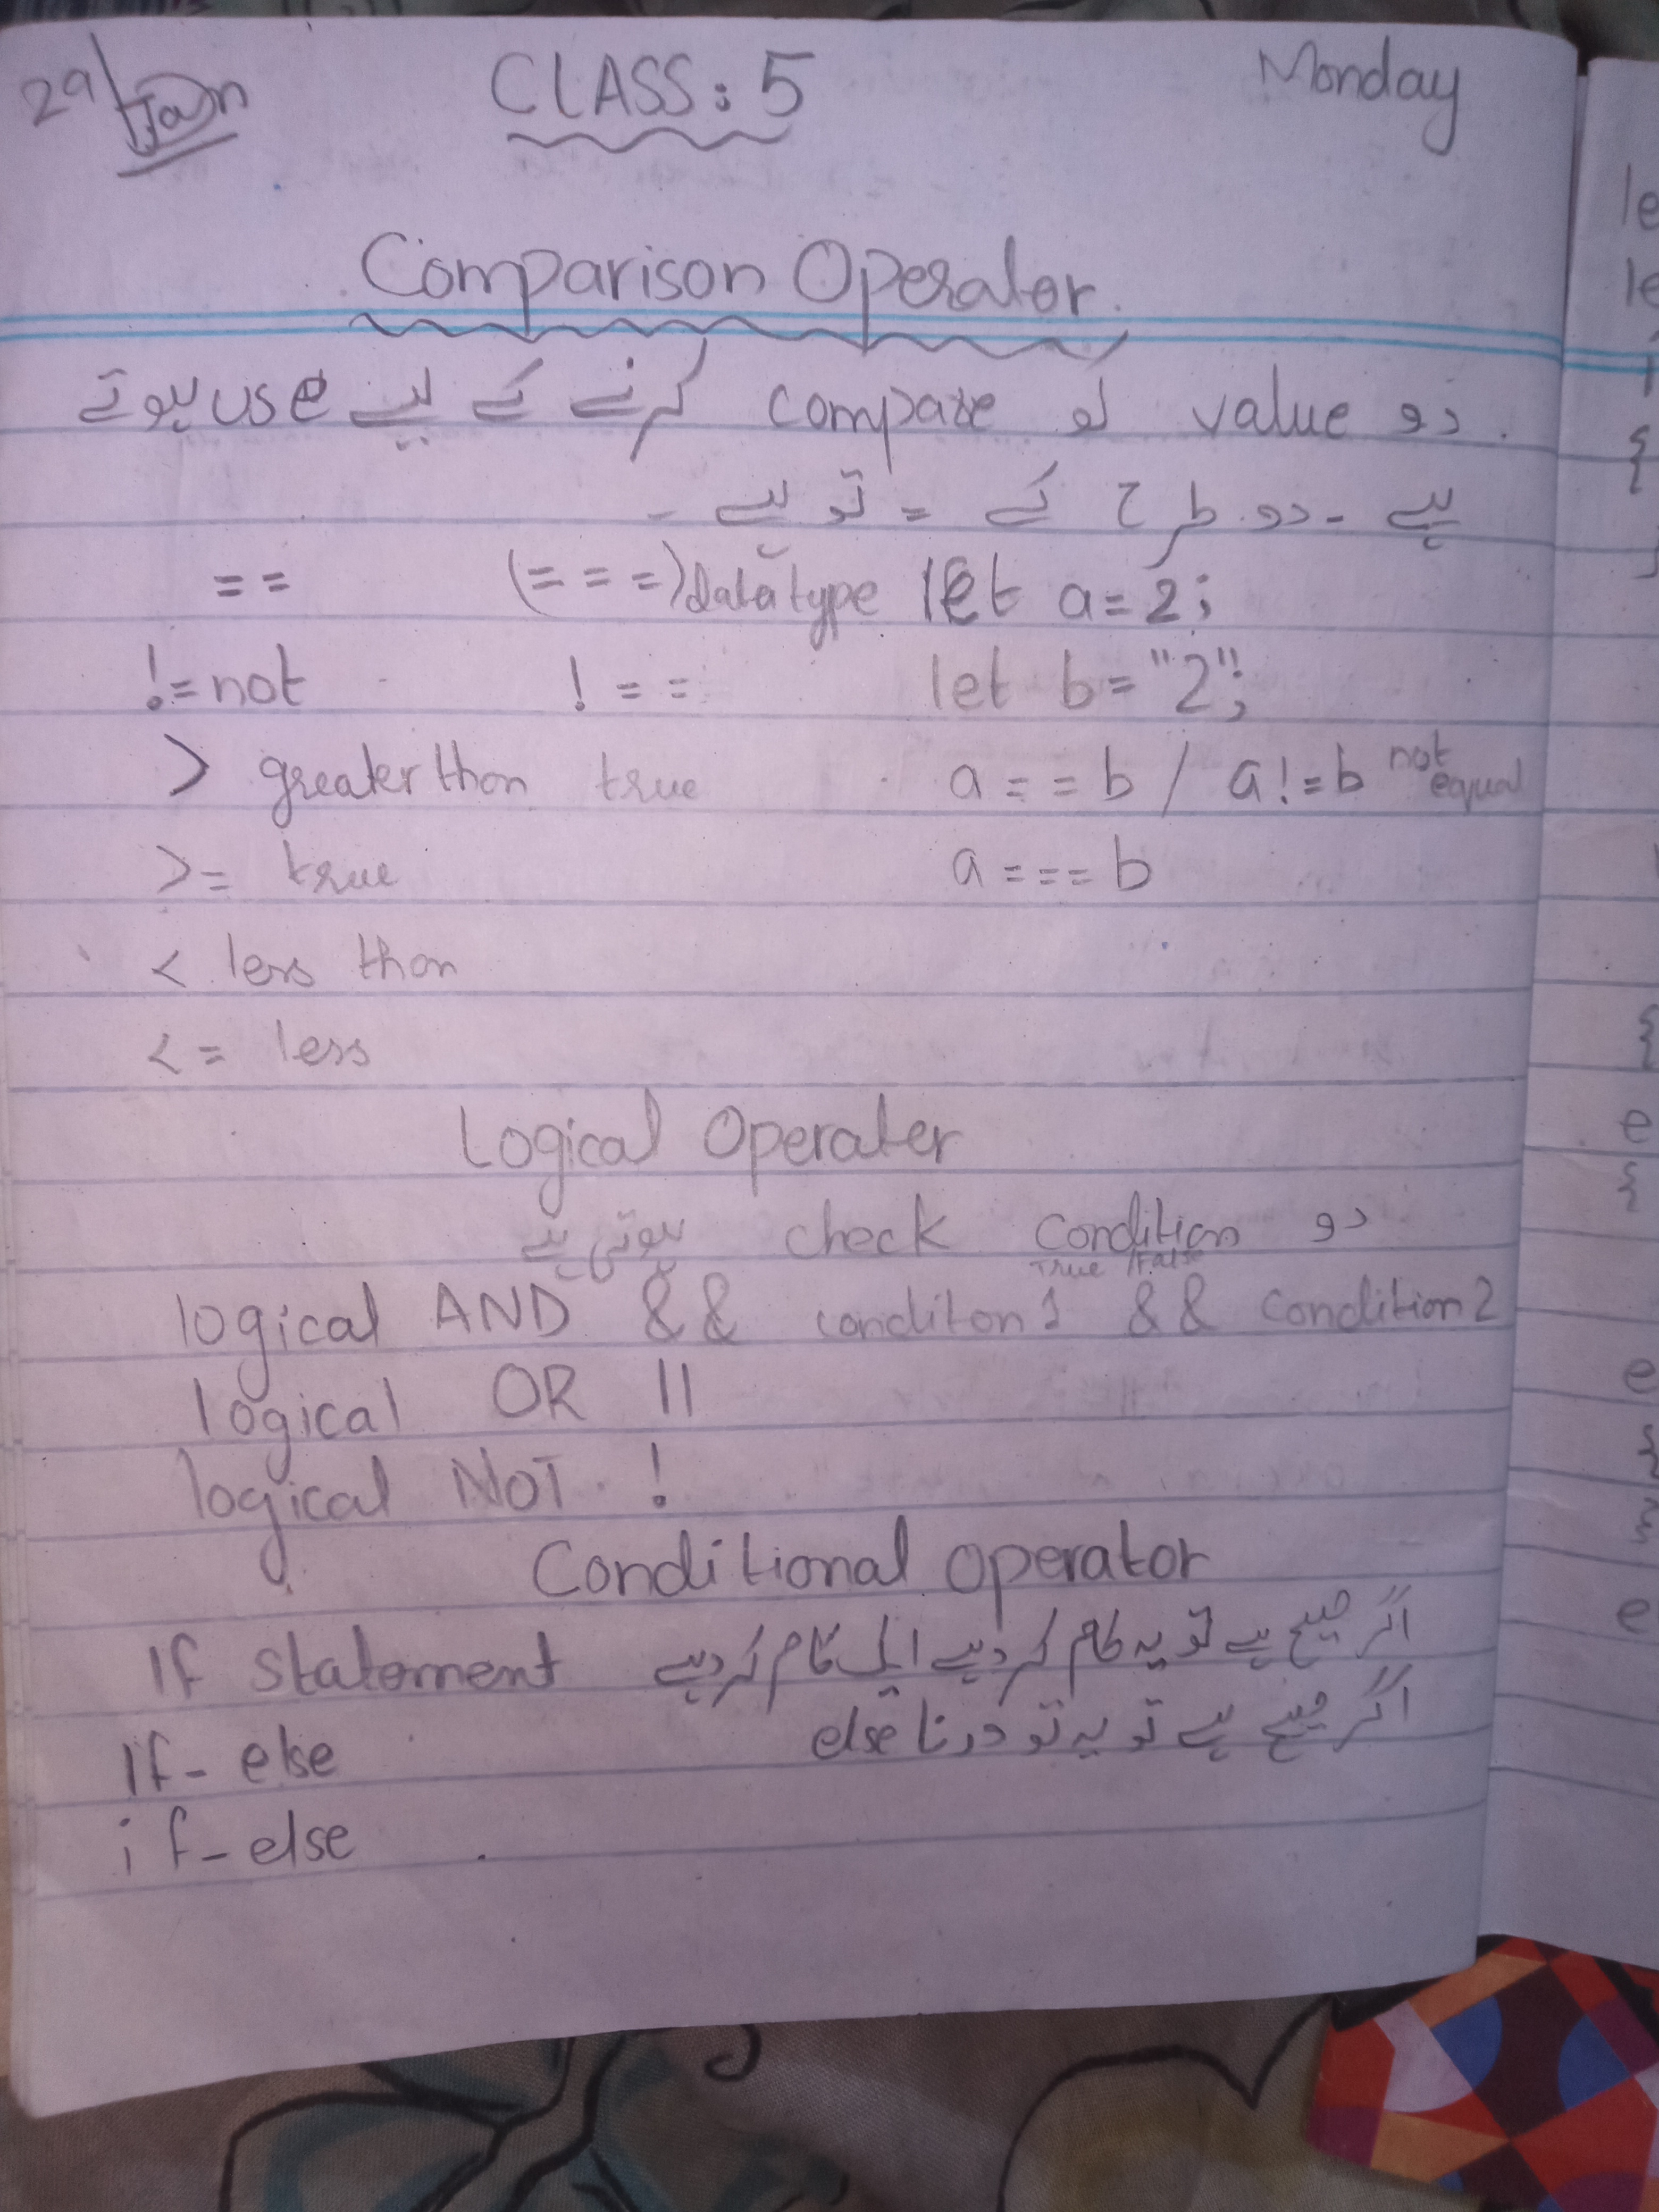 29/Jan CLASS: 5 Monday
Comparison Operator
دو value کو compare کرنے کے لیے use ہوتے
ہے ۔ دو طرح کے = تو ہے ۔
== (===) datatype let a=2;
!=not !== let b="2";
> greater than true a==b / a!=b not equal
>= true a===b
< less than
<= less
Logical Operater
دو condition check ہوتی ہے
True /False
logical AND && conditon1 && condition2
logical OR ||
logical NOT !
Conditional operator
If statement اگر صیح ہے تو یہ کام کر دیے ایک کام کر دیے
If-else اگر صیح ہے تو یہ تو ورنا else
if-else
le
le
{
{
e
{
e
e